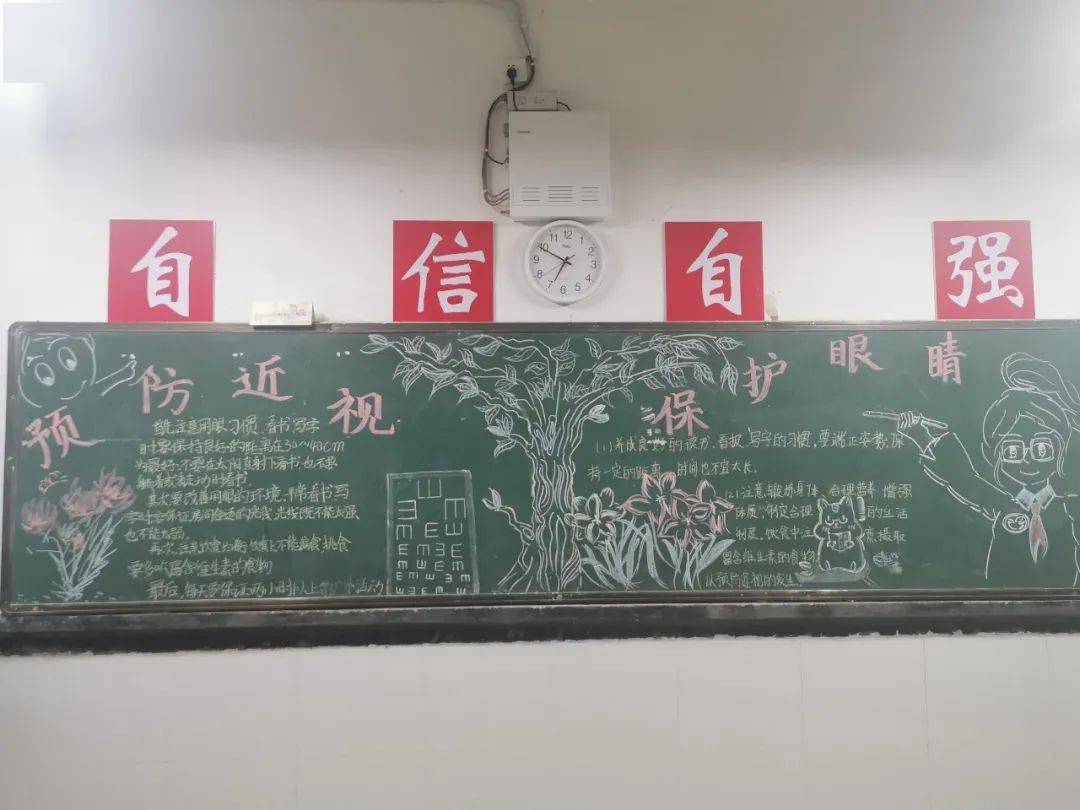 自 信 自 强
12
1
2
3
4
5
6
7
8
9
10
11
预防近视
保护眼睛
首先,注意用眼习惯,看书写字
时要保持良好的距离在30~40cm
为最好,不要在太阳直射下看书,也不要
躺着或走动时看书.
其次要改善用眼的环境,
也不能太弱.
再次,注意饮食均衡,饮食上不能偏食,挑食
要多吃富含维生素的食物
最后,每天要保证两小时以上 活动
E
(1)养成良好的读书、看报、写字的习惯,要端正姿势,保
持一定的距离,时间也不宜太长.
(2)注意锻炼身体、合理营养,增强
体质,制定合理的生活
制度,饮食中注意摄取
富含维生素的食物
以预防近视的发生